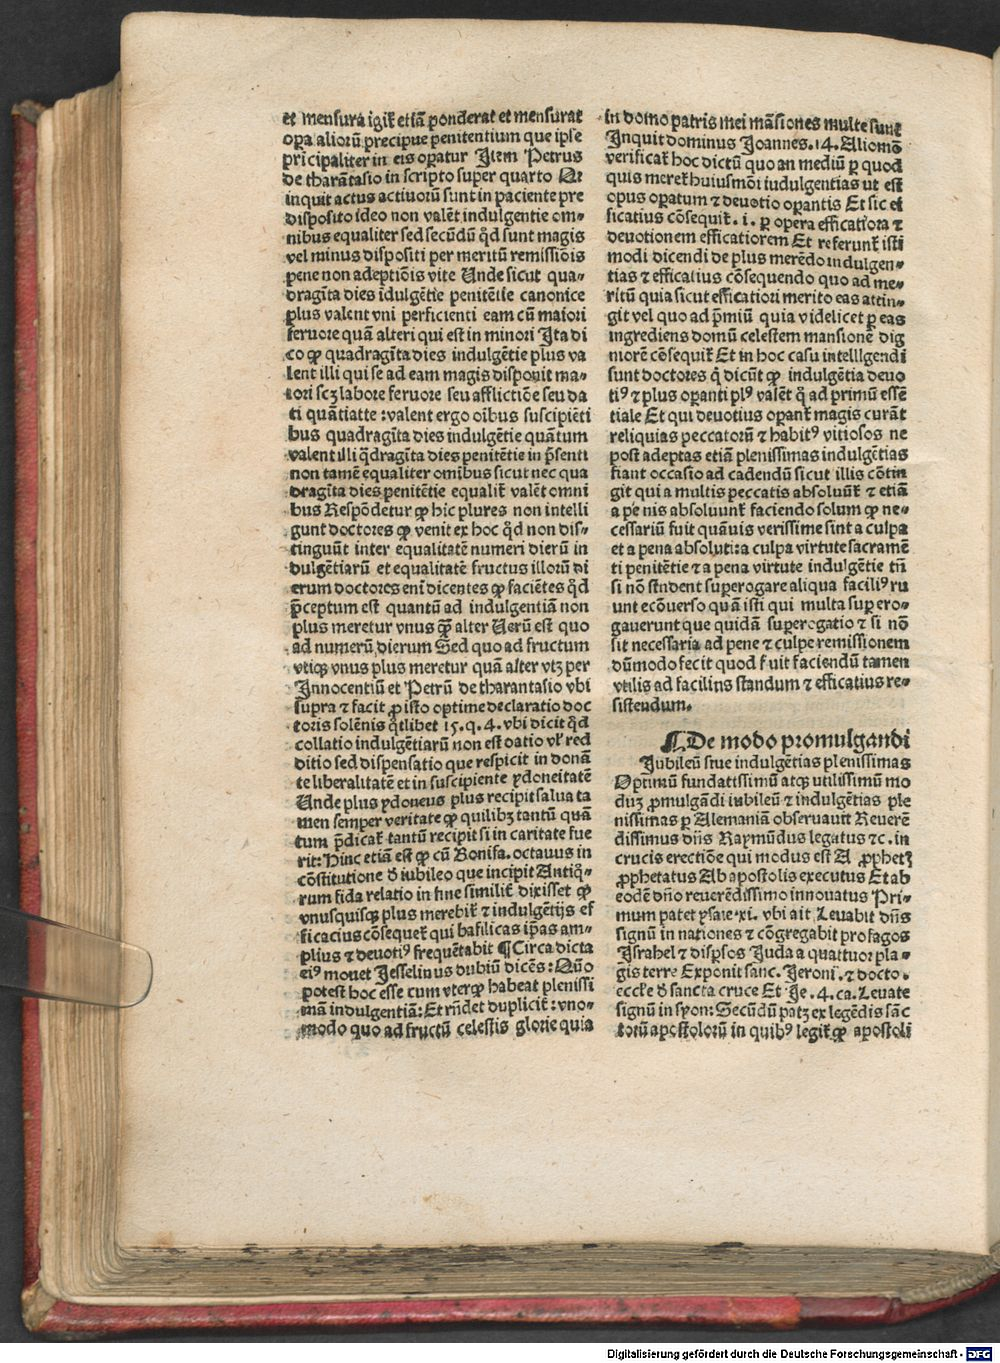 et mensura igit᷑ etiā ponderat et mensurat
oꝑa aliorū precipue penitentium que ipse
pricipaliter in eis oꝑatur Item Petrus
de tharātasio in scripto super quarto Ut
inquit actus actiuorū sunt in paciente pre
disposito ideo non valēt indulgentie om⸗
nibus equaliter sed secūdū qd̄ sunt magis
vel minus dispositi per meritū remissiōis
pene non adeptiōis vite Unde sicut qua⸗
dragīta dies īdulgētie penitētie canonice
plus valent vni perficienti eam cū maiori
feruore quā alteri qui est in minori Ita di
co ꝙ quadragīta dies indulgētie plus va
lent illi qui se ad eam magis disponit ma⸗
iori scꝫ labore feruore seu afflictiōe seu da
ti quātitate :valent ergo oībus suscipiēti
bus quadragīta dies indulgētie quātum
valent illi q̄dragīta dies penitētie in p̄senti
non tamē equaliter omībus sicut nec qua
dragīta dies penitētie equalit᷑ valēt omni
bus Respōdetur ꝙ hic plures non intelli
gunt doctores ꝙ venit ex hoc qd̄ non dis⸗
tinguūt inter equalitatē numeri dierū in
dulgētiarū et equalitatē fructus illorū di
erum doctores enī dicentes ꝙ faciētes qd̄
p̄ceptum est quantū ad indulgentiā non
plus meretur vnus qͣꝫ alter Uerū est quo
ad numerū dierum Sed quo ad fructum
vtiqꝫ vnus plus meretur quā alter vtꝫ per
Innocentiū et Petrū de tharantasio vbi
supra ⁊ facit ꝓ isto optime declaratio doc
toris solēnis q̄tlibet 15. q. 4. vbi dicit qd̄
collatio indulgētiarū non est datio vl᷑ red
ditio sed dispensatio que respicit in donā
te liberalitatē et in suscipiente ydoneitatē
Unde plus ydoneus plus recipit salua ta
men semper veritate ꝙ quilibꝫ tantū quā
tum p̄dicat᷑ tantū recipit si in caritate fue
rit: Hinc etiā est ꝙ cū Bonifa. octauus in
cōstitutione d̄ iubileo que incipit Antiq̄⸗
rum fida relatio in fine similit᷑ dixisset ꝙ
vnusquisqꝫ plus merebit᷑ ⁊ indulgētijs ef
ficacius cōsequet᷑ qui basilicas ip̄as am⸗
plius ⁊ deuotiꝰ frequētabit ¶ Circa dicta
eiꝰ mouet Jesselinus dubiū dicēs: Quō
potest hoc esse cum vterqꝫ habeat plenissi
mā indulgentiā: Et rn̄det duplicit᷑: vno⸗
modo quo ad fructū celestis glorie quia
in domo patris mei māsiones multe sunt
Inquit dominus Joannes. 14. Aliomō
verificat᷑ hoc dictū quo an mediū ꝑ quod
quis meret᷑ huiusmōi iudulgentias ut est
opus oꝑatum ⁊ deuotio oꝑantis Et sic ei
ficatius cōsequit᷑. i. ꝑ opera efficatiora ⁊
deuotionem efficatiorem Et referunt᷑ isti
modi dicendi de plus merēdo indulgen⸗
tias ⁊ efficatius cōsequendo quo ad me⸗
ritū quia sicut efficatiori merito eas attin⸗
git vel quo ad p̄miū quia videlicet ꝑ eas
ingrediens domū celestem mansionē dig
niorē cōsequit᷑ Et in hoc casu intelllgendi
sunt doctores q̄ dicūt ꝙ indulgētia deuo
tiꝰ ⁊ plus oꝑanti plꝰ valēt q̄ ad primū essē
tiale Et qui deuotius oꝑant᷑ magis curāt
reliquias peccatorū ⁊ habitꝰ vitiosos ne
post adeptas etiā plenissimas indulgētias
fiant occasio ad cadendū sicut illis cōtin
git qui a multis peccatis absoluūt᷑ ⁊ etiā
a pe nis absoluunt᷑ faciendo solum ꝙ ne⸗
cessariū fuit quāuis verissime sint a culpa
et a pena absoluti: a culpa virtute sacramē
ti penitētie ⁊ a pena virtute indulgētie tn̄
si nō stndent superogare aliqua faciliꝰ ru
unt ecōuerso quā isti qui multa supero⸗
gauerunt que quidā superogatio ⁊ si nō
sit necessaria ad pene ⁊ culpe remissionem
dūmodo fecit quod fuit faciendū tamen
vtilis ad facilius standum ⁊ efficatius re⸗
sistendum.
¶ De modo promulgandi
Jubileū siue indulgētias plenissimas
Optimū fundatissimū atqꝫ utilissimū mo
duꝫ ꝓmulgādi iubileū ⁊ indulgētias ple
nissimas ꝑ Alemaniā obseruauit Reuerē
dissimus dn̄s Raymūdus legatus ⁊c. in
crucis erectiōe qui modus est A ꝓphetꝫ
ꝓphetatus Ab apostolis executus Et ab
eodē dn̄o reuerēdissimo innouatus Pri⸗
mum patet ysaie·xi. vbi ait Leuabit dn̄s
signū in nationes ⁊ cōgregabit profagos
Israhel ⁊ disꝑsos Juda a quattuor pla⸗
gis terre Exponit sanc. Jeroni. ⁊ docto.
eccl̄e d̄ sancta cruce Et Je. 4. ca. Leuate
signū in syon: Secūdū patꝫ ex legēdis sāc
torū apostolorū in quibꝰ legit᷑ ꝙ apostoli
Digitalisierung gefördert durch die Deutsche Forschungsgemeinschaft - DFG